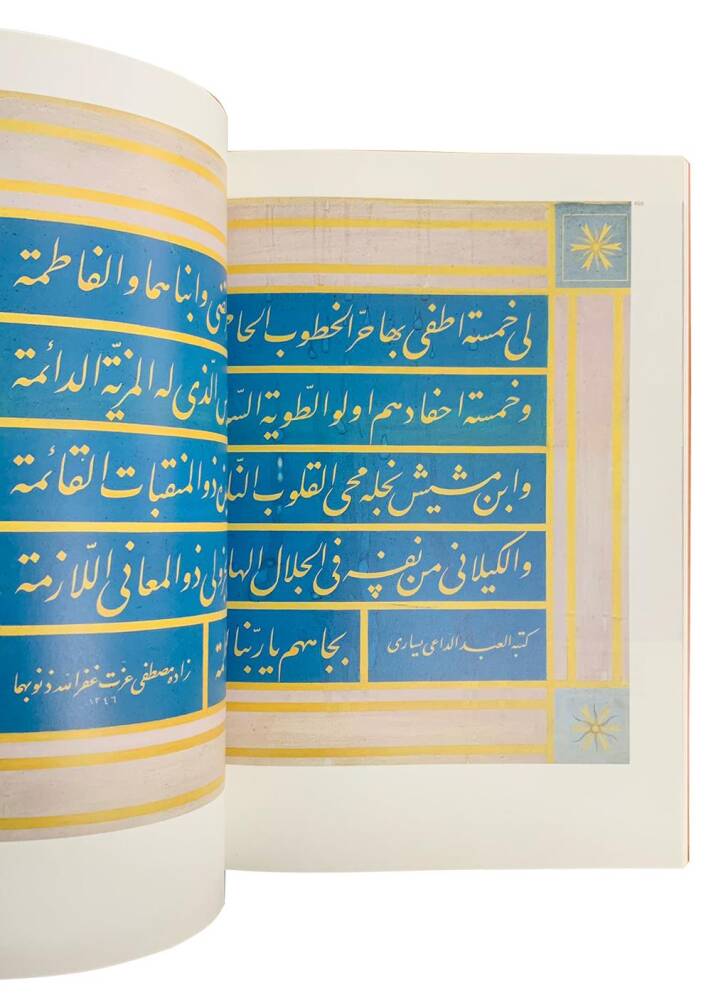 لى خمسة اطفى بها حر الخطوب الحا
وابناهما والفاطمة
وخمسة احفادهم اولو الطّوية
الّذى له المزيّة الدائمة
وابن مشيش نجله محى القلوب
ذو المنقبات القائمة
والكيلانى من نفسه فى الجلال
ذو المعانى اللّازمة
بجاههم يا ربّنا
كتبه العبد الداعى يسارى
زاده مصطفى عزت غفر الله ذنوبهما
١٢٤٦